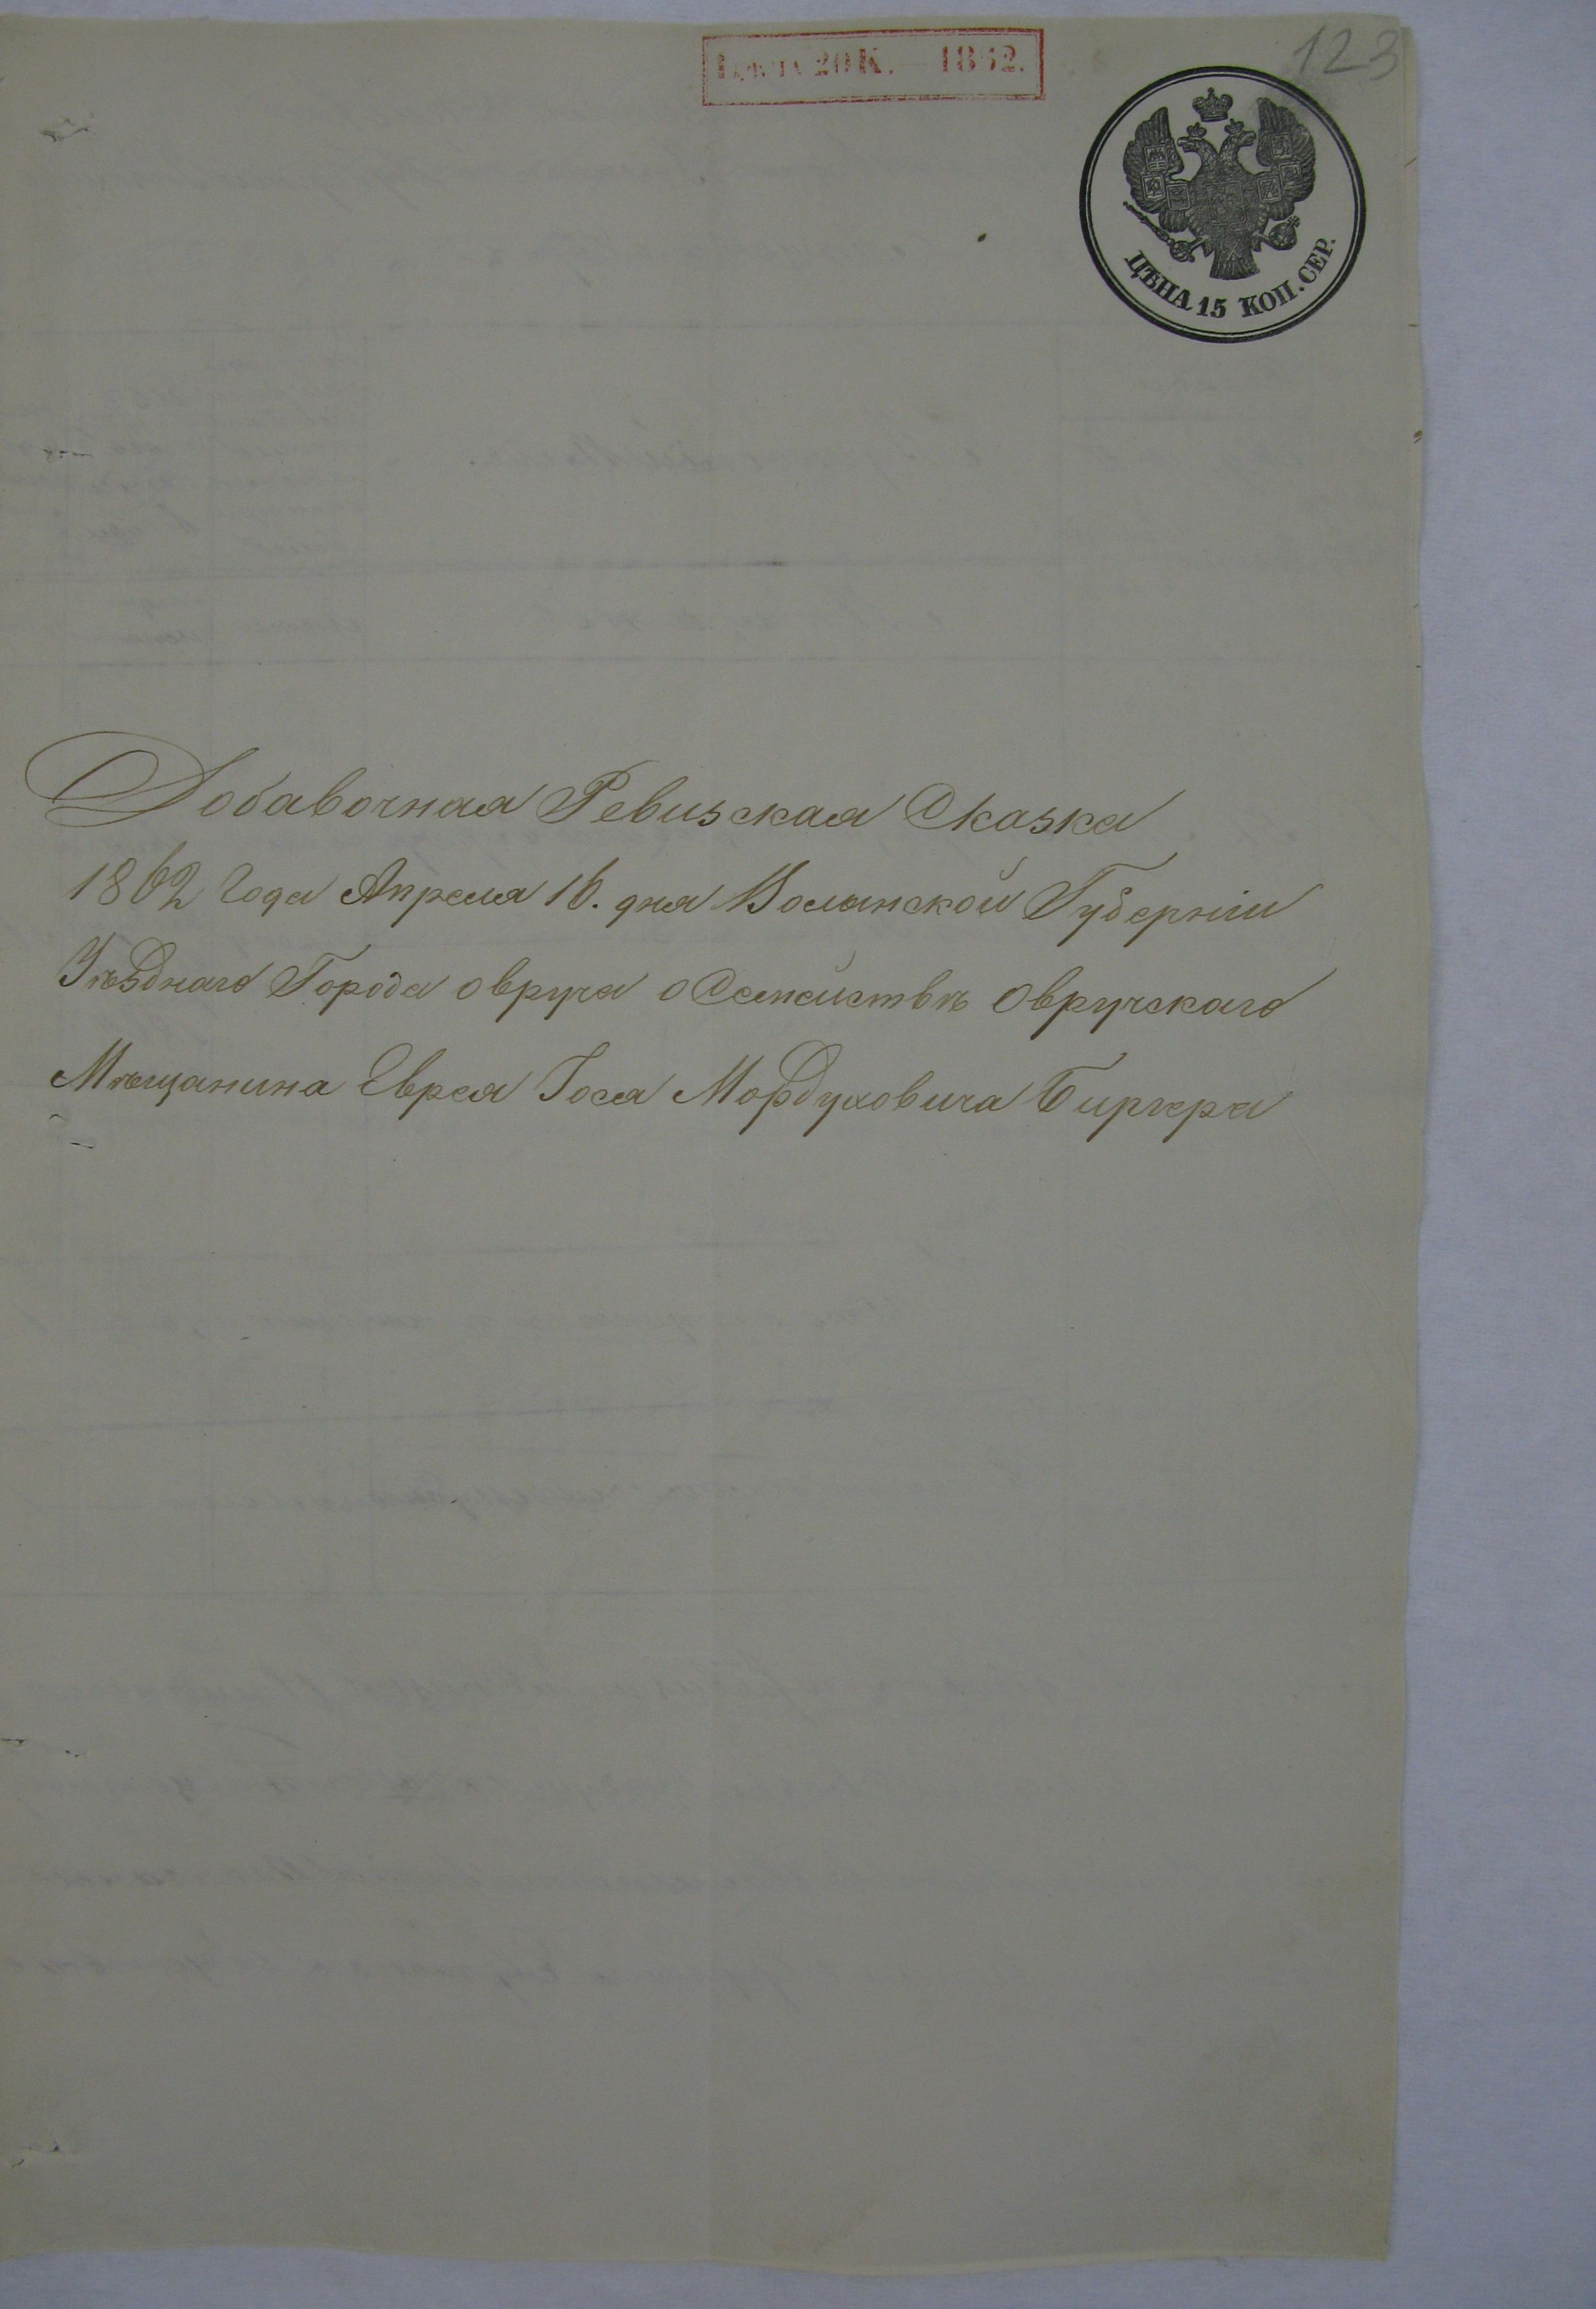 ЦѢНА 20 К. — 1862.
123
ЦѢНА 15 КОП. СЕР.
Добавочная Ревизская Сказка
1862 Года Апреля 16. дня Волынской Губерніи
Уѣзднаго Города овруча о Семействѣ Овручскаго
Мѣщанина Еврея Іося Мордуховича Биргера